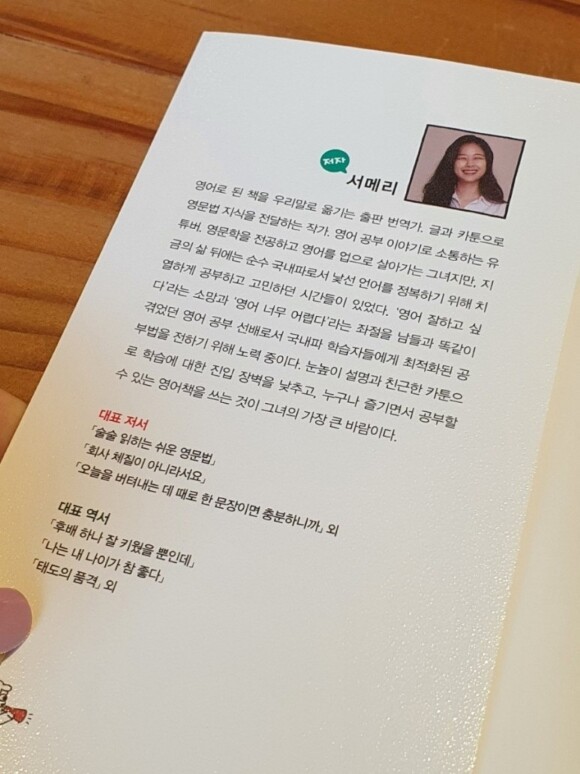 저자
서메리
영어로 된 책을 우리말로 옮기는 출판 번역가. 글과 카툰으로
영문법 지식을 전달하는 작가. 영어 공부 이야기로 소통하는 유
튜버. 영문학을 전공하고 영어를 업으로 살아가는 그녀지만, 지
금의 삶 뒤에는 순수 국내파로서 낯선 언어를 정복하기 위해 치
열하게 공부하고 고민하던 시간들이 있었다. ‘영어 잘하고 싶
다’라는 소망과 ‘영어 너무 어렵다’라는 좌절을 남들과 똑같이
겪었던 영어 공부 선배로서 국내파 학습자들에게 최적화된 공
부법을 전하기 위해 노력 중이다. 눈높이 설명과 친근한 카툰으
로 학습에 대한 진입 장벽을 낮추고, 누구나 즐기면서 공부할
수 있는 영어책을 쓰는 것이 그녀의 가장 큰 바람이다.
대표 저서
「술술 읽히는 쉬운 영문법」
「회사 체질이 아니라서요」
「오늘을 버텨내는 데 때로 한 문장이면 충분하니까」 외
대표 역서
「후배 하나 잘 키웠을 뿐인데」
「나는 내 나이가 참 좋다」
「태도의 품격」 외